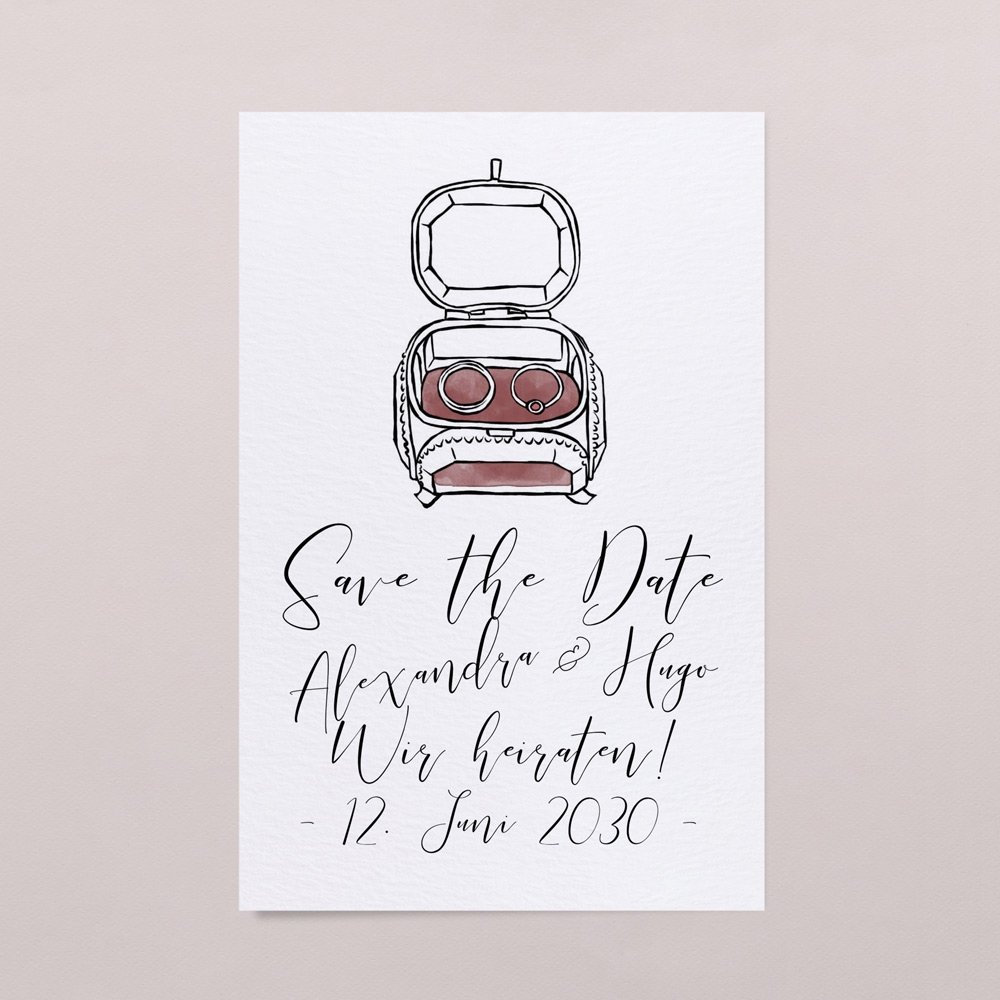 Save the Date
Alexandra & Hugo
Wir heiraten!
- 12. Juni 2030 -